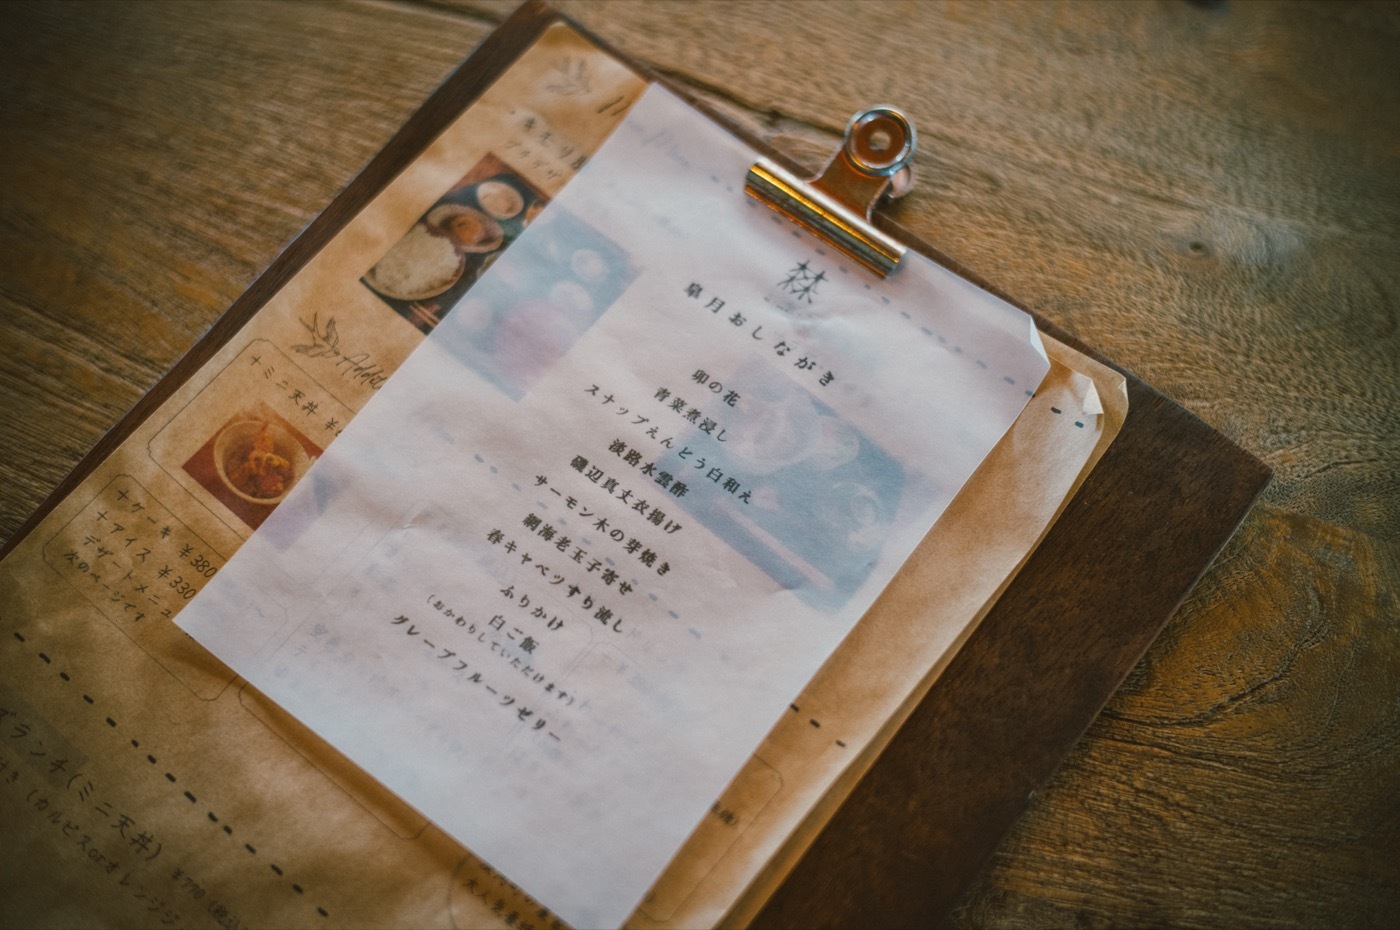 皐月おしながき
卯の花
青菜煮浸し
スナップえんどう白和え
淡路水雲酢
磯辺真丈衣揚げ
サーモン木の芽焼き
網海老玉子寄せ
春キャベツすり流し
ふりかけ
白ご飯
(おかわりしていただけます)
グレープフルーツゼリー
Addi
+
ミニ天丼 ¥
+ケーキ ¥380
+アイス ¥330
デザートメニュ
次のページです
ズランチ(ミニ天丼) ¥770 (税込
付き (カルピスorオレンジジ